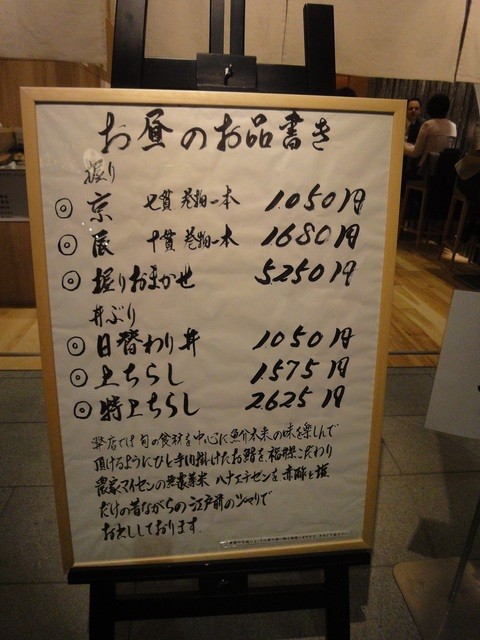 お昼のお品書き
握り
◎ 京 七貫 巻物一本 1.050円
◎ 辰 十貫 巻物一本 1680円
◎ 握りおまかせ 5250円
丼ぶり
◎ 日替わり丼 1050円
◎ 上ちらし 1.575円
◎ 特上ちらし 2.625円
弊店では旬の食材を中心に魚介本来の味を楽しんで
頂けるようにひと手間掛けたお鮨を福井県こだわり
農家マイセンの無農薬米 ハナエチゼンを 赤酢と塩
だけの昔ながらの江戸前のシャリで
お出ししております。